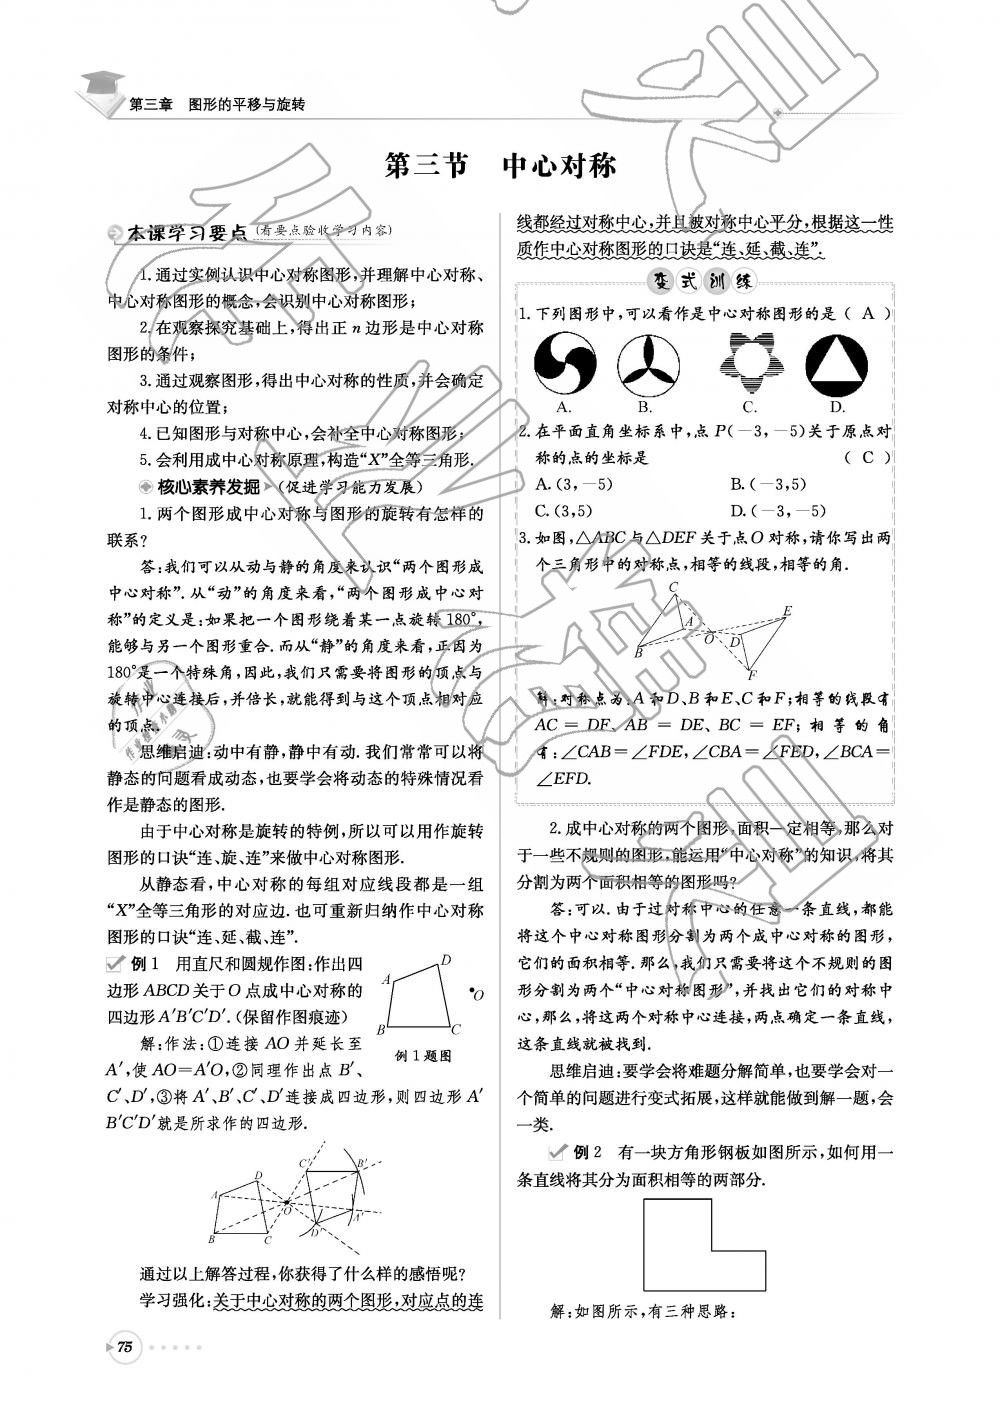 第三章　图形的平移与旋转
第三节　中心对称
本课学习要点(看要点验收学习内容)
1.通过实例认识中心对称图形,并理解中心对称、
中心对称图形的概念,会识别中心对称图形;
2.在观察探究基础上,得出正 n 边形是中心对称
图形的条件;
3.通过观察图形,得出中心对称的性质,并会确定
对称中心的位置;
4.已知图形与对称中心,会补全中心对称图形;
5.会利用成中心对称原理,构造“X”全等三角形.
核心素养发掘(促进学习能力发展)
1.两个图形成中心对称与图形的旋转有怎样的
联系?
答:我们可以从动与静的角度来认识“两个图形成
中心对称”.从“动”的角度来看,“两个图形成中心对
称”的定义是:如果把一个图形绕着某一点旋转 180°,
能够与另一个图形重合.而从“静”的角度来看,正因为
180°是一个特殊角,因此,我们只需要将图形的顶点与
旋转中心连接后,并倍长,就能得到与这个顶点相对应
的顶点.
思维启迪:动中有静,静中有动.我们常常可以将
静态的问题看成动态,也要学会将动态的特殊情况看
作是静态的图形.
由于中心对称是旋转的特例,所以可以用作旋转
图形的口诀“连、旋、连”来做中心对称图形.
从静态看,中心对称的每组对应线段都是一组
“X”全等三角形的对应边.也可重新归纳作中心对称
图形的口诀“连、延、截、连”.
例1　用直尺和圆规作图:作出四
边形 ABCD 关于 O 点成中心对称的
四边形 A′B′C′D′.(保留作图痕迹)
A
D
O
B
C
例 1 题图
解:作法:①连接 AO 并延长至
A′,使 AO=A′O,②同理作出点 B′、
C′、D′,③将 A′、B′、C′、D′连接成四边形,则四边形 A′
B′C′D′就是所求作的四边形.
C′
B′
D
A
O
A′
B
C
D′
通过以上解答过程,你获得了什么样的感悟呢?
学习强化:关于中心对称的两个图形,对应点的连
线都经过对称中心,并且被对称中心平分,根据这一性
质作中心对称图形的口诀是“连、延、截、连”.
变式训练
1.下列图形中,可以看作是中心对称图形的是 ( A )
A.　B.　C.　D.
2.在平面直角坐标系中,点 P(−3,−5)关于原点对
称的点的坐标是 ( C )
A.(3,−5)　B.(−3,5)
C.(3,5)　D.(−3,−5)
3.如图,△ABC 与△DEF 关于点 O 对称,请你写出两
个三角形中的对称点,相等的线段,相等的角.
C
E
A
O
D
B
F
解:对称点为:A 和 D、B 和 E、C 和 F;相等的线段有
AC = DF、AB = DE、BC = EF;相等的角
有:∠CAB=∠FDE,∠CBA=∠FED,∠BCA=
∠EFD.
2.成中心对称的两个图形,面积一定相等,那么对
于一些不规则的图形,能运用“中心对称”的知识,将其
分割为两个面积相等的图形吗?
答:可以.由于过对称中心的任意一条直线,都能
将这个中心对称图形分割为两个成中心对称的图形,
它们的面积相等.那么,我们只需要将这个不规则的图
形分割为两个“中心对称图形”,并找出它们的对称中
心,那么,将这两个对称中心连接,两点确定一条直线,
这条直线就被找到.
思维启迪:要学会将难题分解简单,也要学会对一
个简单的问题进行变式拓展,这样就能做到解一题,会
一类.
例2　有一块方角形钢板如图所示,如何用一
条直线将其分为面积相等的两部分.
解:如图所示,有三种思路:
75